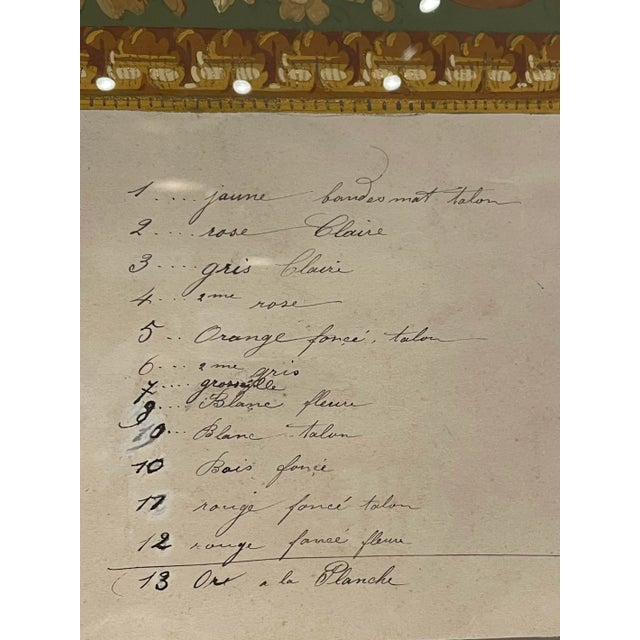 1.... jaune bandes mat talon
2.... rose Claire
3.... gris Claire
4... 2me rose
5.. Orange foncé. talon
6... 2me gris
7.... groseille
8.... Blanc fleure
9... Blanc talon
10 Bois foncé
11 rouge foncé talon
12 rouge foncé fleure
13 Or a la Planche